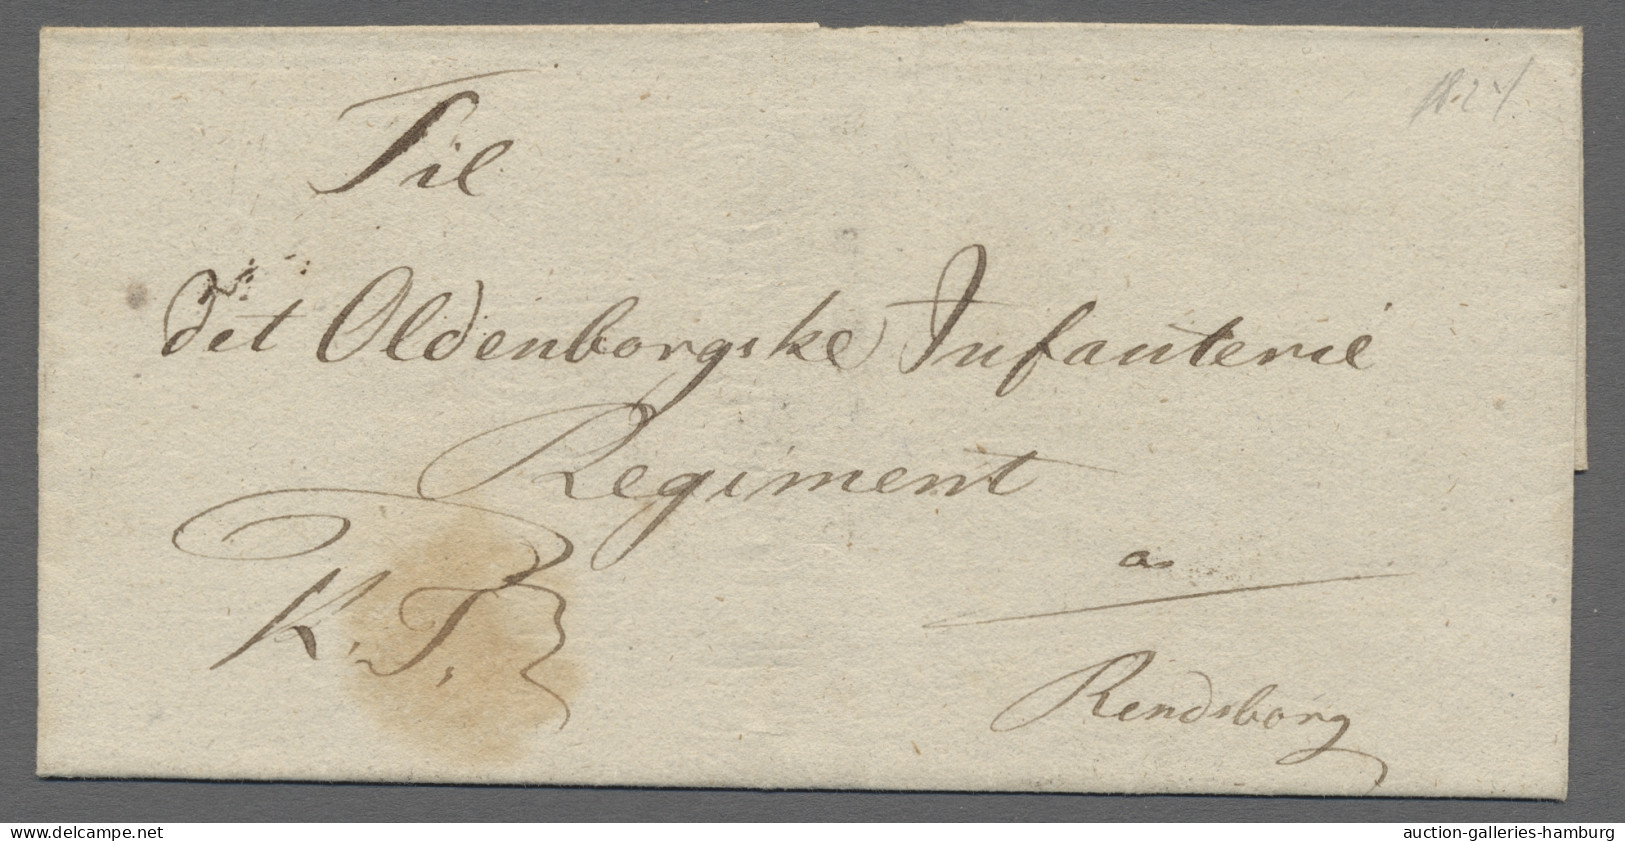 Til
det Oldenborgske Infanterie
Regiment
a
K. T.
Rendsborg
www.delcampe.net
auction-galleries-hamburg